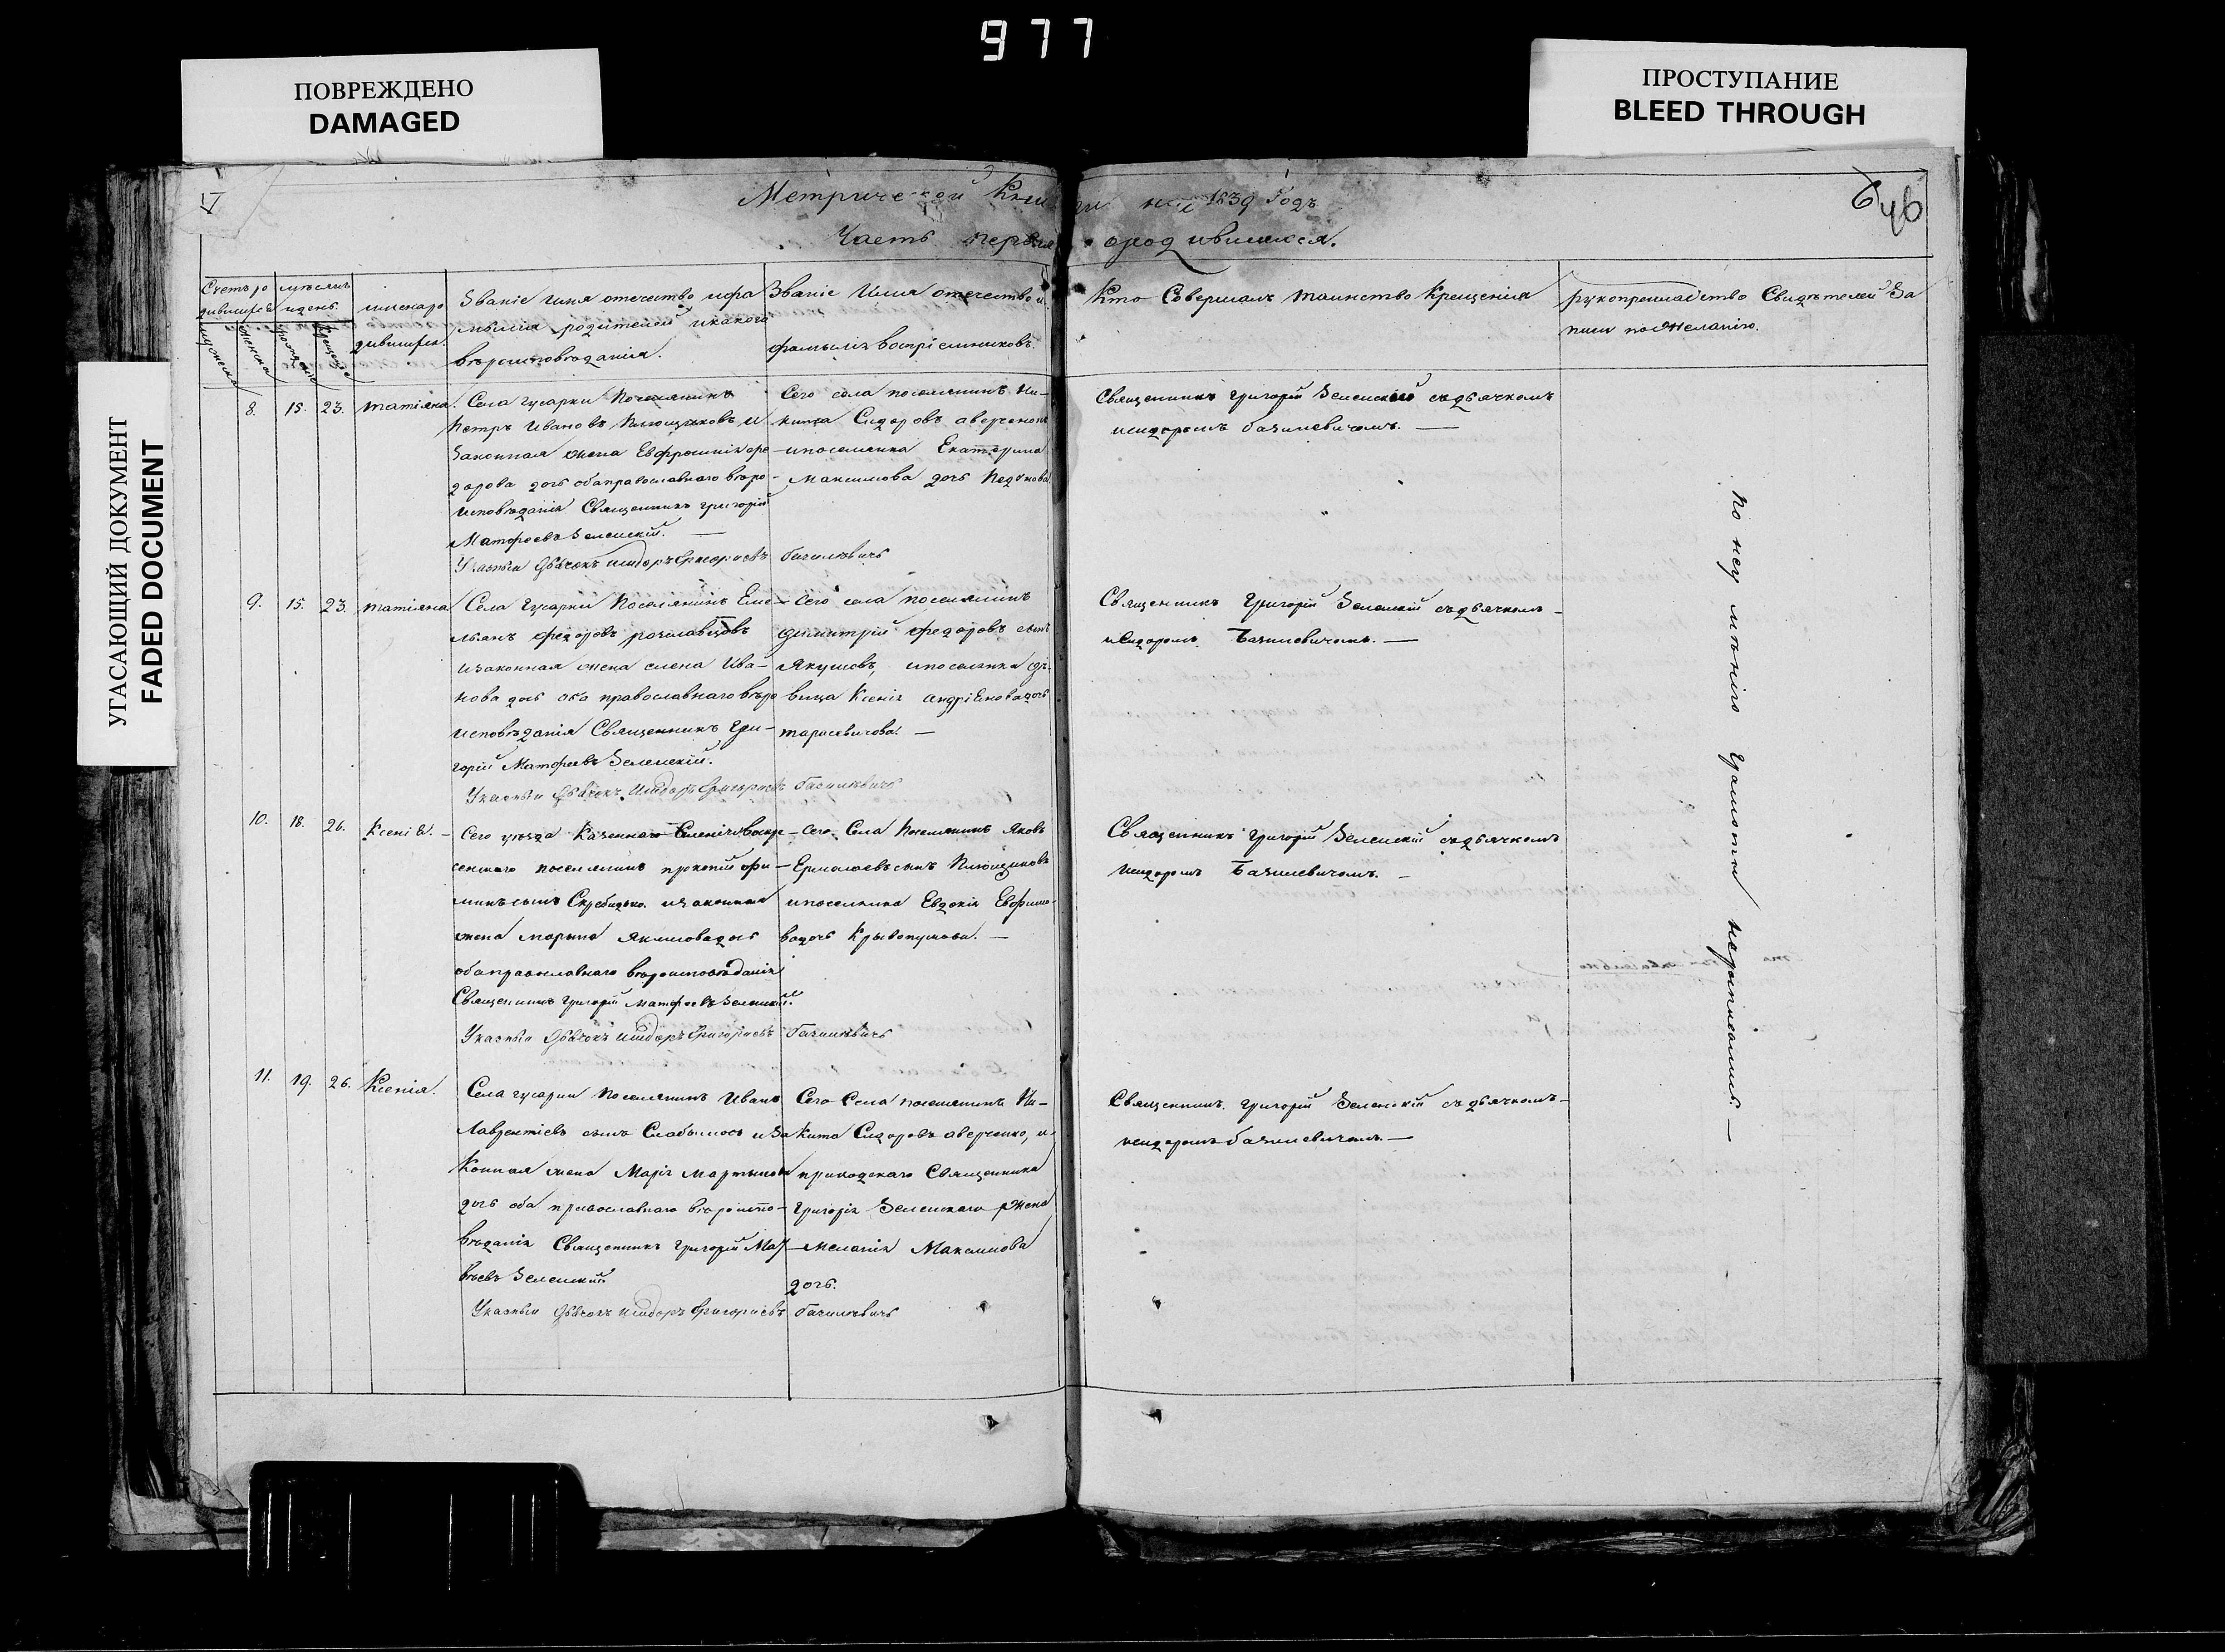 977
ПОВРЕЖДЕНО
DAMAGED
ПРОСТУПАНИЕ
BLEED THROUGH
УГАСАЮЩИЙ ДОКУМЕНТ
FADED DOCUMENT
Метрической Книги на 1839 Годъ
46
Часть первая ородившихся.
Счетъ ро
дившихся
мужеска
женска
мѣсяцъ
идень
рожденіе
крещеніе
имена ро
дившихся.
Званіе Имя отечество ифа
мылія родителей икакого
вѣроисповѣданія.
Званіе Имя отечество и
фамылія воспріемниковъ.
Кто Совершалъ таинство Крещенія
рукоприкладство Свидѣтелей За
писи пожеланію.
8. 15. 23. татіяна.
Села гусарки Поселянинъ
Петръ Ивановъ Плющиковъ и
Законная жена Евфросинія фе
дорова дочь обаправославнаго вѣро-
исповѣданія Священникъ григорій
Матфеевъ Зеленскій.
Указный Дьячокъ Исидоръ Григорьевъ Базилевичъ
Сего села поселянинъ Ни-
кита Сидоровъ аверченко
ипоселянка Екатерина
Максимова дочь
Священникъ григорій Зеленскій съдьячкомъ
исидоромъ базилевичемъ. —
9. 15. 23. татіяна
Села Гусарки Поселянинъ Еме-
льянъ федоровъ
изаконная жена елена Ива-
нова дочь оба православнаго вѣро
исповѣданія Священникъ Гри-
горій Матфеевъ Зеленскій.
Указный Дьячокъ Исидоръ Григорьевъ Базилевичъ
Сего села поселянинъ
димитрій федоровъ сынъ
Якушовъ, ипоселянка дѣ-
вица Ксенія андріенова дочь
тарасевичова. —
Священникъ Григорій Зеленскій съдьячкомъ-
исидоромъ Базилевичемъ. —
10. 18. 26. Ксенія. -
Сего уѣзда Казеннаго Селенія воскре-
сенскаго поселянинъ прокопій
сынъ изаконная
жена марина Якимова дочь
обаправославнаго вѣроисповѣданія
Священникъ Григорій матфеевъ Зеленскій.
Указный Дьячокъ Исидоръ Григорьевъ Базилевичъ
Сего Села Поселянинъ Яковъ
Ермолаевъ сынъ Плющиковъ
ипоселянка Евдокія Евфимо-
ва дочь —
Священникъ григорій Зеленскій съдьячкомъ
Исидоромъ Базилевичемъ. -
11. 19. 26. Ксенія.
Села гусарки Поселянинъ Иванъ
Лаврентіевъ сынъ иза
Конная жена Марія мартынова
дочь оба православнаго вѣроиспо-
вѣданія Священникъ григорій Мат-
вѣевъ Зеленскій
Указный Дьячокъ Исидоръ Григорьевъ Базилевичъ
Сего Села поселянинъ Ни-
кита Сидоровъ аверченко, и
приходскаго Священника
Григорія Зеленскаго жена
мелания Максимова
дочь.
Священникъ. григорій Зеленскій съдьячкомъ-
исидоромъ базилевичемъ. —
По неумѣнію Грамоты неподписались. —